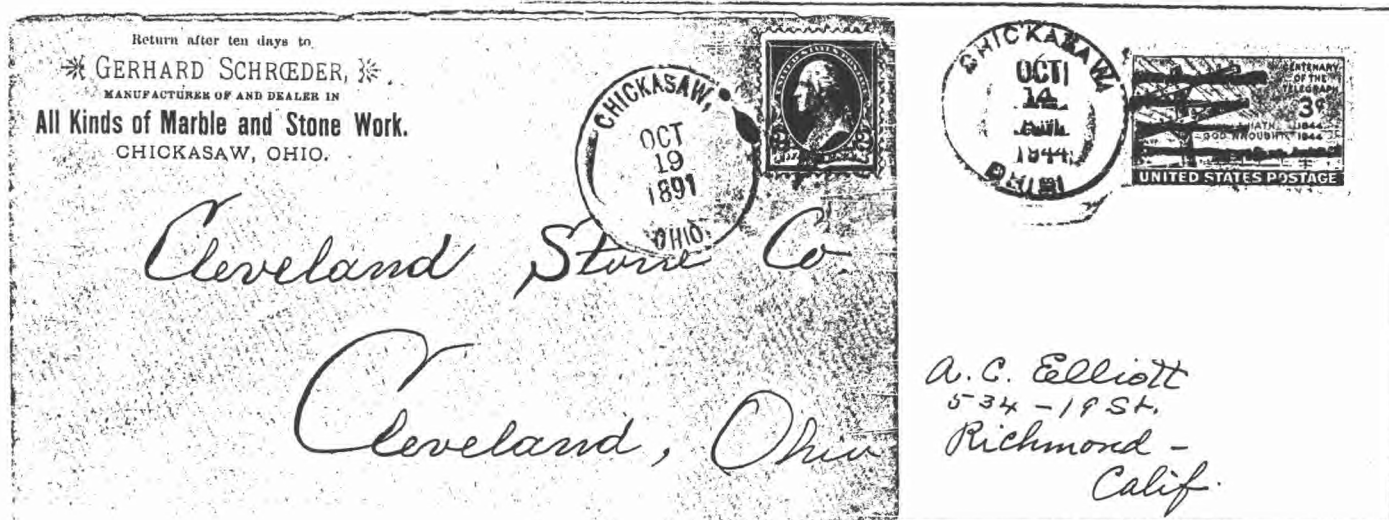 Return after ten days to
GERHARD SCHRŒDER,
MANUFACTURER OF AND DEALER IN
All Kinds of Marble and Stone Work.
CHICKASAW, OHIO.
CHICKASAW,
OCT
19
1891
OHIO.
2 2
Cleveland Stone Co.
Cleveland, Ohio
CHICKASAW
OCT
14
1944
OHIO
CENTENARY
OF THE
TELEGRAPH
3¢
HATH 1844
GOD WROUGHT 1944
UNITED STATES POSTAGE
A. C. Elliott
534 - 19 St.
Richmond -
Calif.